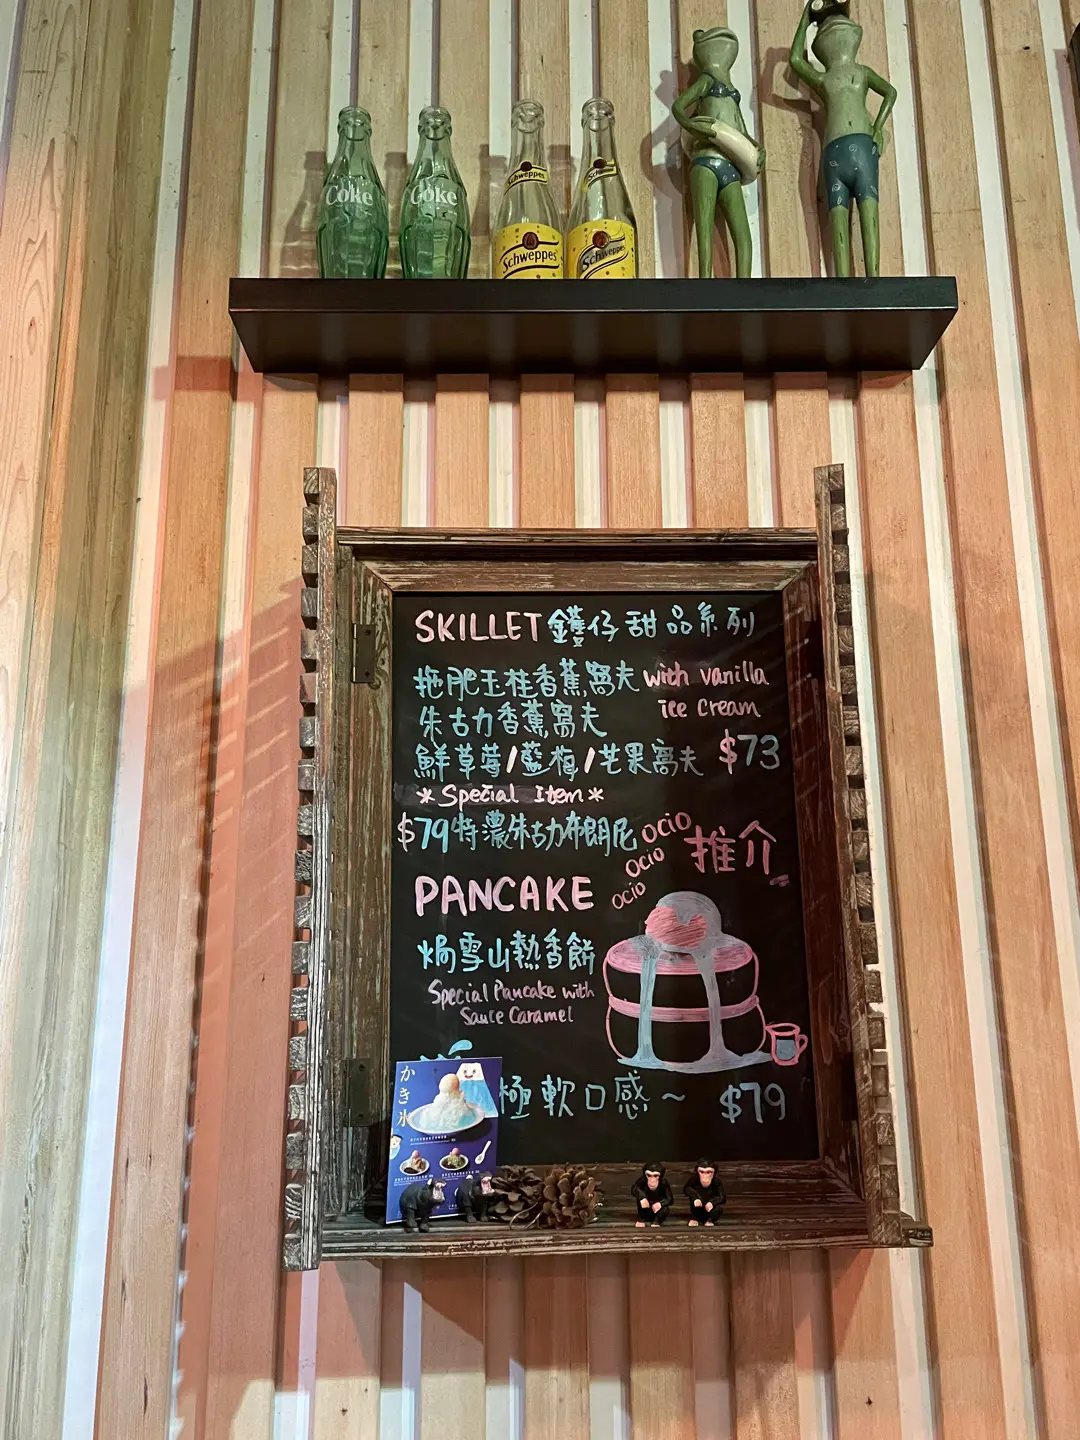 Coke
Coke
Schweppes
Schweppes
Schweppes
Schweppes
SKILLET 鑊仔甜品系列
拖肥玉桂香蕉窩夫 with vanilla
朱古力香蕉窩夫 ice cream
鮮草莓/藍梅/芒果窩夫 $73
*Special Item*
$79 特濃朱古力布朗尼
ocio
ocio
ocio
推介
PANCAKE
焗雪山熱香餅
Special Pancake with
Sauce Caramel
極軟口感~ $79
かき氷